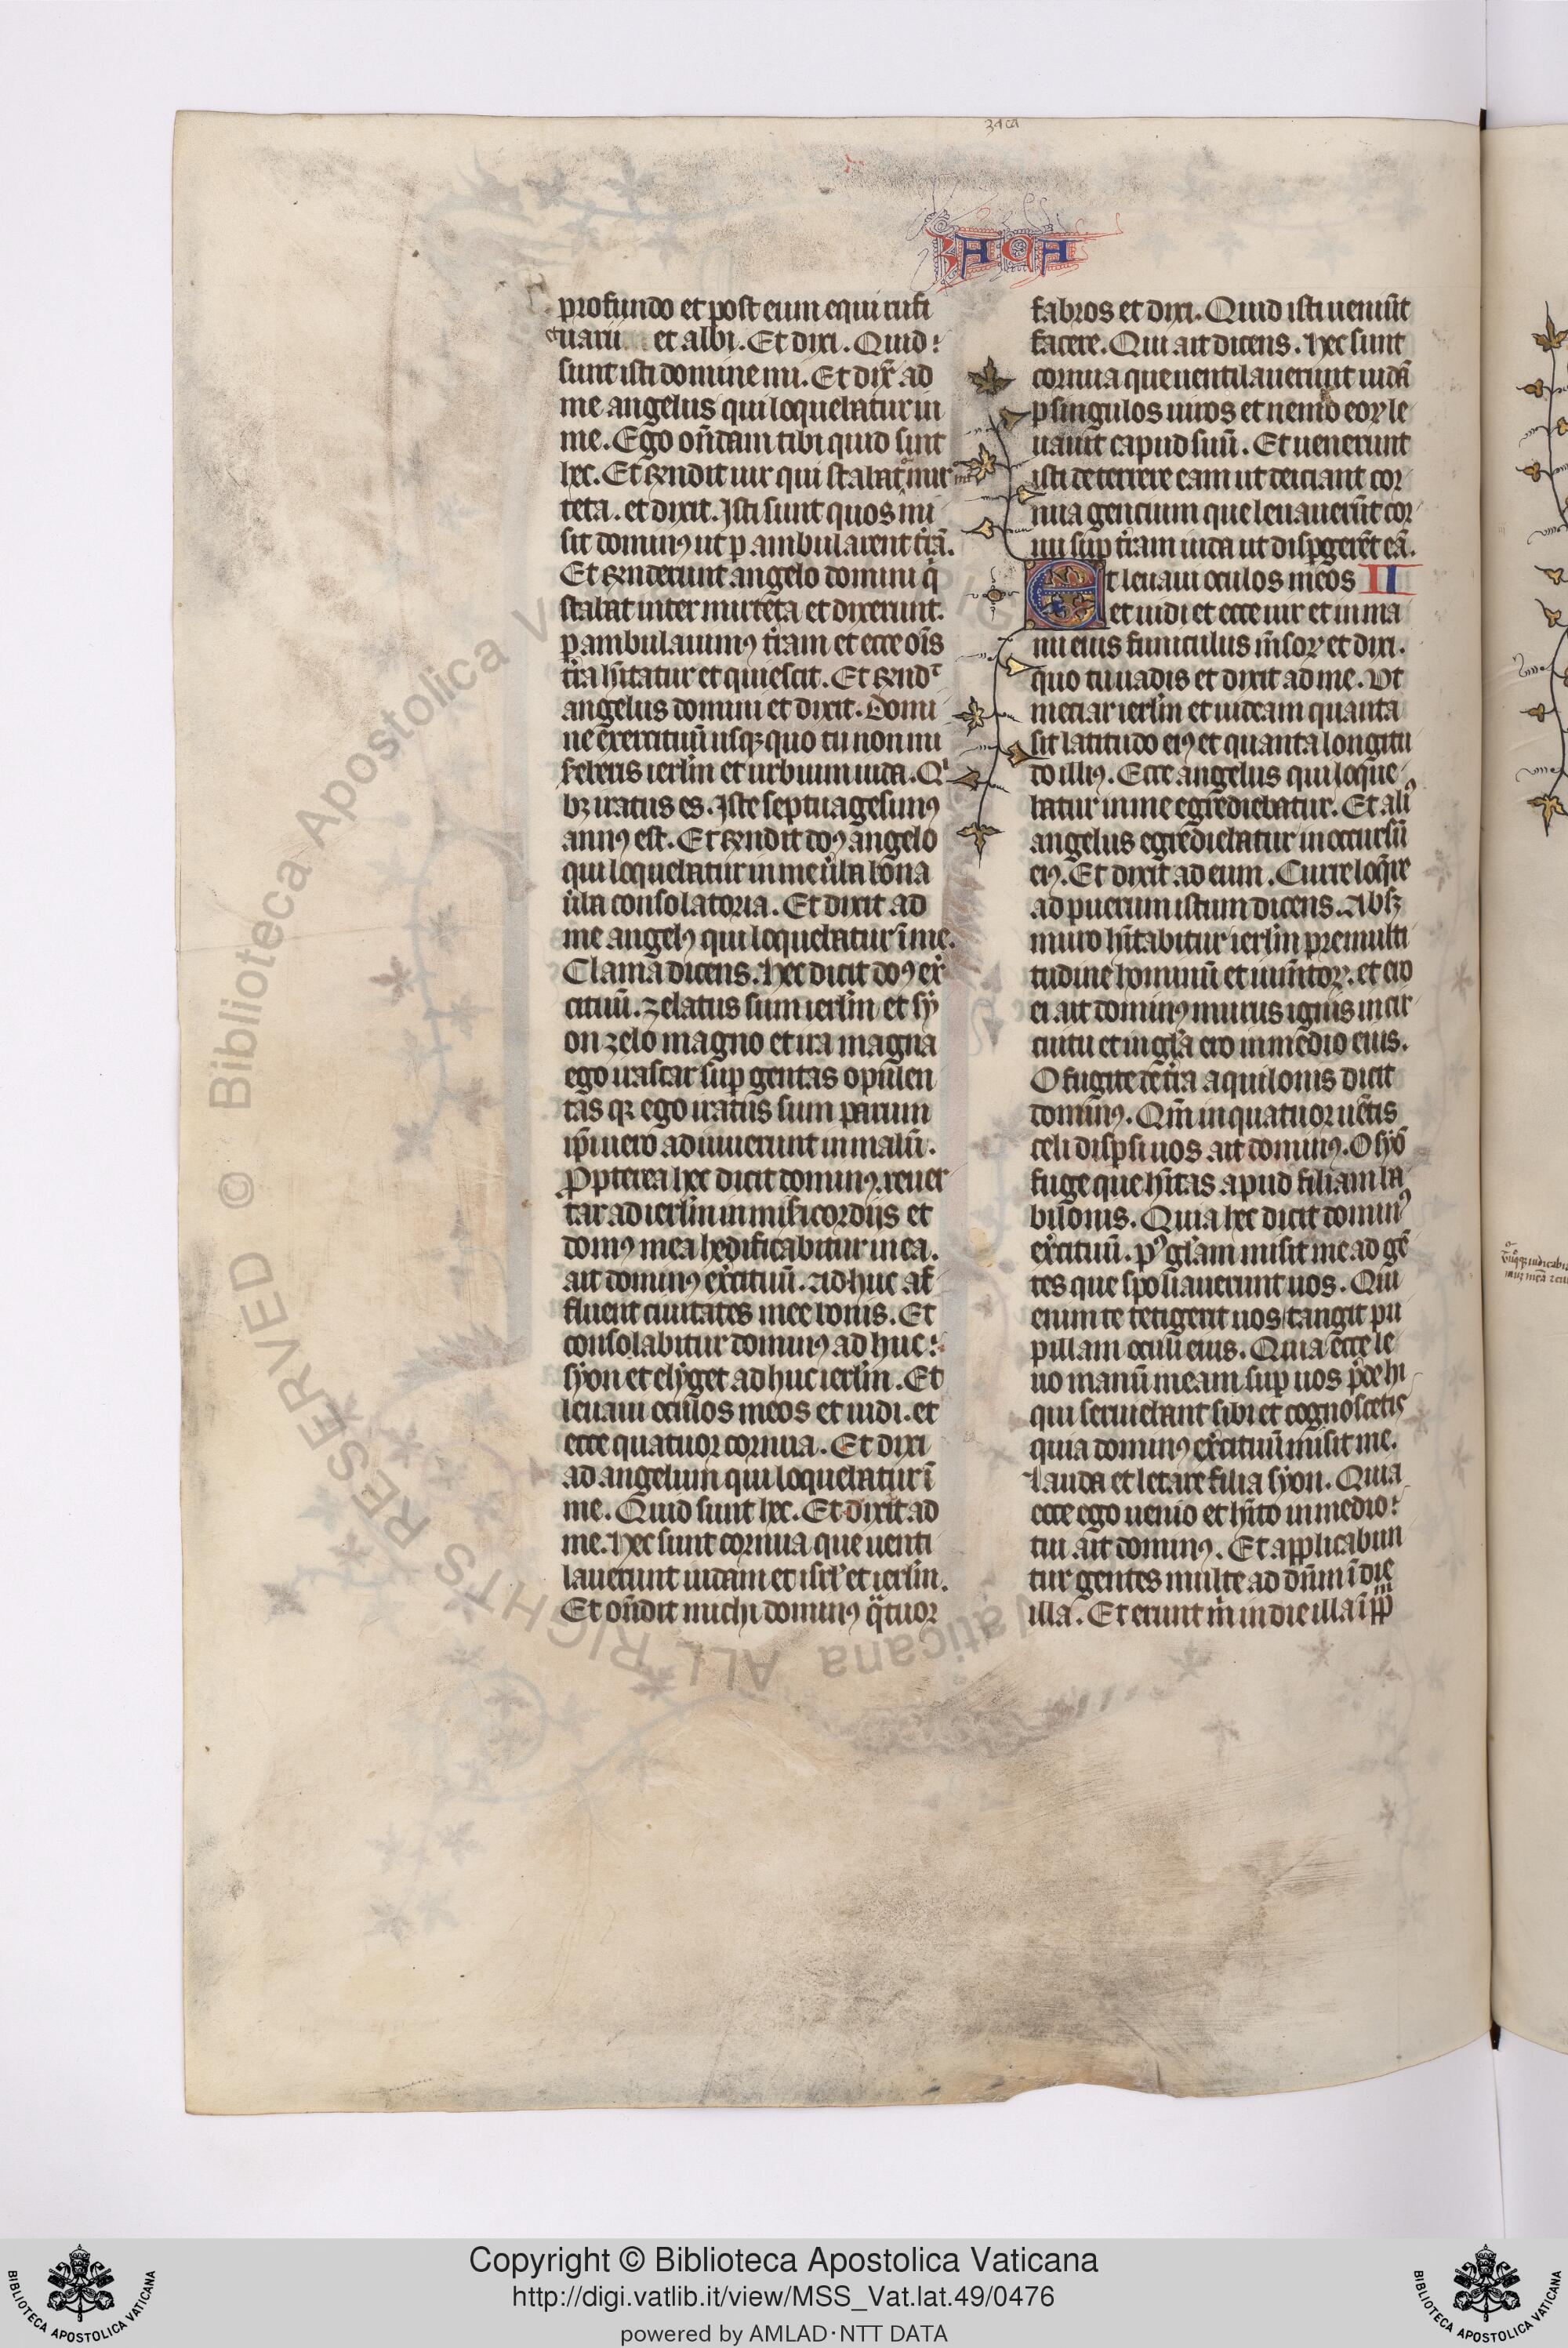 zaca
ZACA
profundo et post eum equi rufi
et uarii et albi. Et dixi. Quid
sunt isti domine mi. Et dix̄ ad
me angelus qui loquebatur in
me. Ego on̄dam tibi quid sint
hec. Et rn̄dit uir qui stabat int̄ mir
teta. et dixit. Isti sunt quos mi
sit dominꝰ ut ꝑambularent tr̄ā.
Et rn̄derunt angelo domini q̇
stabat inter mirtēta et dixerunt.
ꝑambulauimꝰ tr̄am et ecce om̄s
tr̄a hītatur et quiescit. Et rn̄dᵗ
angelus domini et dixit. Domi
ne exercituū usqꝫ quo tu non mi
sereberis ierl̄m et urbium iuda. Qⁱ
bꝫ iratus es. Iste septuagesimꝰ
annꝰ est. Et rn̄dit dōs angelo
qui loquebatur in me u̇ba bona
u̇ba consolatoria. Et dixit ad
me angelꝰ qui loquebatur ī me.
Clama dicens. hec dicit dōs exˀ
cituū. zelatus sum ierl̄m et sẏ
on zelo magno et ira magna
ego irascar suꝑ gentas opulen
tas qꝛ ego iratus sum parum
ip̄i uero adiuuerunt in malū.
Ꝓpterea hec dicit dominꝰ. reuer
tar ad ierl̄m in misˀicordijs et
domꝰ mea hedificabitur in ea.
ait dominꝰ exˀcituū. Ad huc af
fluent ciuitates mee bonis. Et
consolabitur dominꝰ ad huc
sẏon et elẏget ad huc ierl̄m. Et
leuaui oculos meos et uidi. et
ecce quatuor cornua. Et dixi
ad angelum qui loquebatur ī
me. Quid sunt hec. Et dixit ad
me. hec sunt cornua que uenti
lauerunt iudam et isrl̄ et ierl̄m.
Et on̄dit michi dominꝰ qͣtuor
fabros et dixi. Quid isti ueniūt
facere. Qui ait dicens. hec sunt
cornua que uentilauerunt iudā
ꝑ singulos uiros et nemo eoꝝ le
uauit capud suū. Et uenerunt
isti deterrere eam ut deiciant cor
nua gencium que leuauerūt cor
nu suꝑ tr̄am iuda ut disꝑgerēt eā.
Et leuaui oculos meos II
et uidi et ecce uir et in ma
nu eius funiculus m̄soꝝ et dixi.
quo tu uadis et dixit ad me. Ut
metiar ierl̄m et uideam quanta
sit latitudo eiꝰ et quanta longitu
do illiꝰ. Ecce angelus qui loque
batur in me egrediebatur. Et aliꝰ
angelus egrediebatur in occursū
eiꝰ. Et dixit ad eum. Curre loqͣre
ad puerum istum dicens. Absqꝫ
muro hītabitur ierl̄m pre multi
tudine hominū et iumītoꝝ. et ero
ei ait dominꝰ murus ignis in cir
cuitu et in gl̄a ero in medio eius.
O fugite de tr̄a aquilonis dicit
dominꝰ. Qm̄ in quatuor uētis
celi disꝑsi uos ait dominꝰ. O sẏō
fuge que hītas apud filiam ba
bilonis. Quia hec dicit dominꝰ
exˀcituū. pꝰ gl̄am misit me ad gē
tes que spoliauerunt uos. Qui
enim te tetigerit uos / tangit pu
pillam oculi eius. Quia ecce le
uo manū meam suꝑ uos pˀde hi
qui seruiebant sibi et cognoscetis
quia dominꝰ exˀcituū misit me.
Lauda et letare filia sẏon. Quia
ecce ego uenio et hīto in medio
tui ait dominꝰ. Et applicabun
tur gentes multe ad dn̄m ī die
illa. Et erunt m̄ in die illa ī ppm̄
© Biblioteca Apostolica Vaticana ALL RIGHTS RESERVED
Copyright © Biblioteca Apostolica Vaticana
http://digi.vatlib.it/view/MSS_Vat.lat.49/0476
powered by AMLAD·NTT DATA
BIBLIOTECA APOSTOLICA VATICANA
BIBLIOTECA APOSTOLICA VATICANA